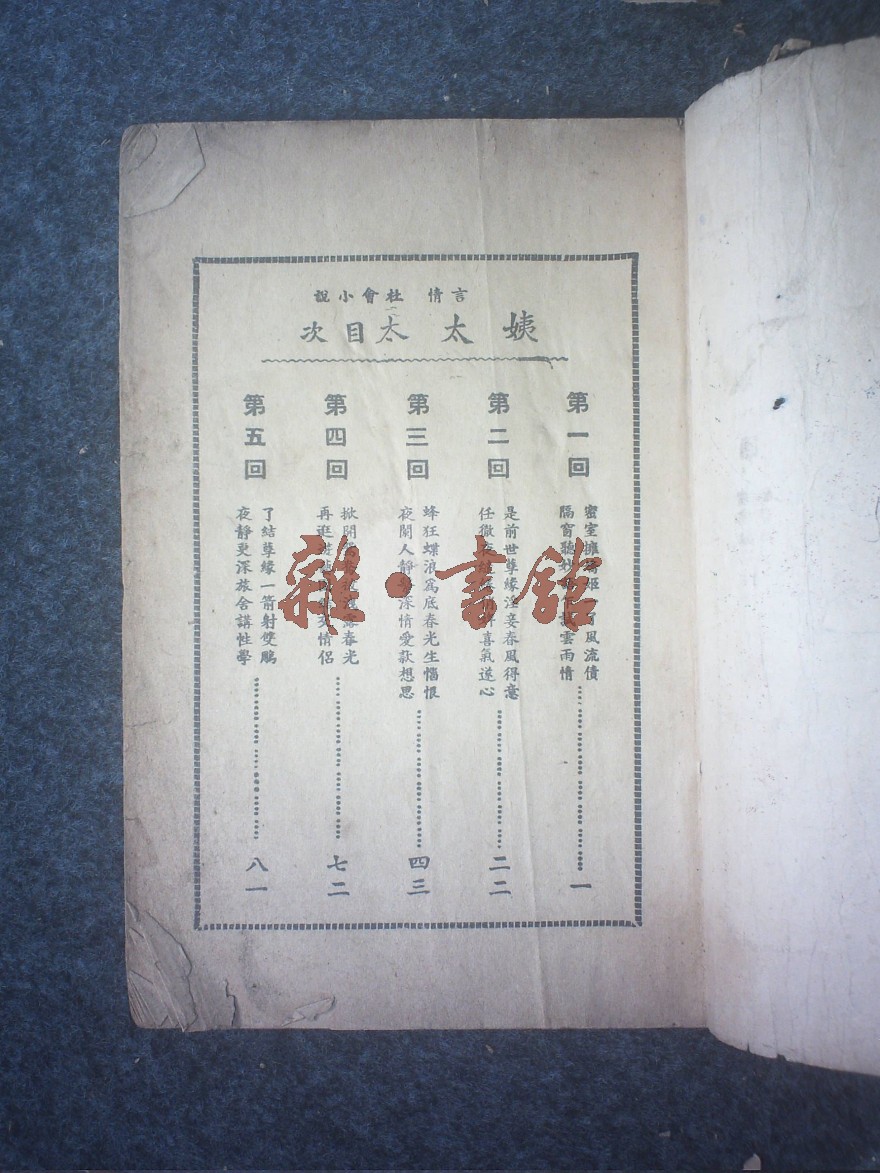 言情 社會小說
姨太太目次
第一回
密室擁 姬 風流債
隔窗聽 雲雨情
一
第二回
是前世孽緣淫妾春風得意
任 喜氣遂心
二二
第三回
蜂狂蝶浪爲底春光生惱恨
夜闌人靜 深情愛款想思
四三
第四回
掀開 春光
再逛 情侶
七二
第五回
了結孽緣一箭射雙鵰
夜靜更深旅舍講性學
八一
雜·書館